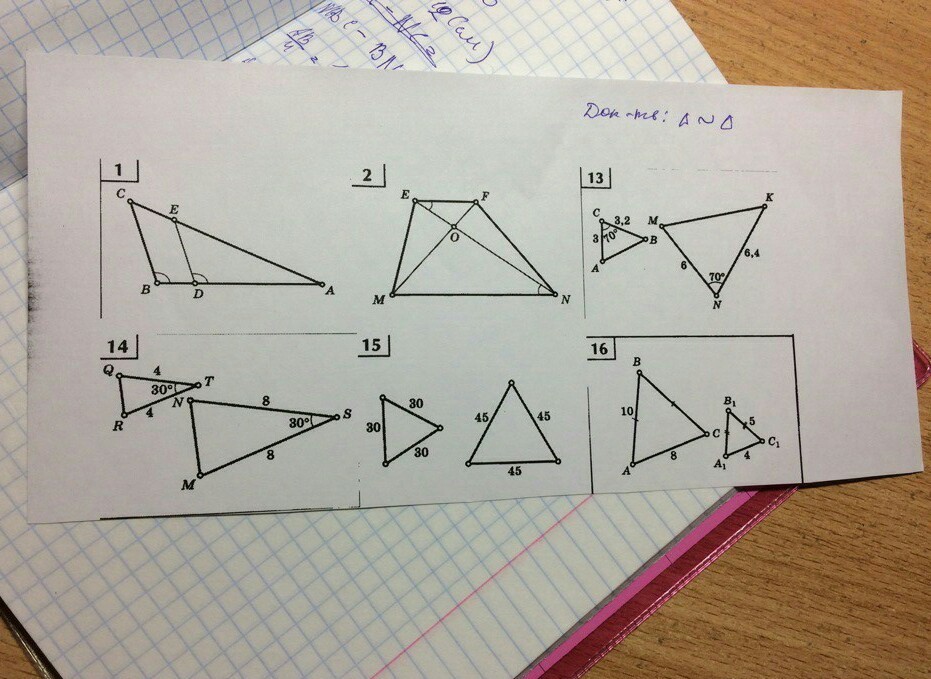 Док-ть: Δ ~ Δ
1
C
E
B
D
A
2
E
F
O
M
N
13
C
3,2
3
70°
B
A
M
K
6
6,4
70°
N
14
Q
4
T
30°
R
4
N
8
S
30°
8
M
15
30
30
30
45
45
45
16
B
10
C
A
8
B₁
5
C₁
A₁
4